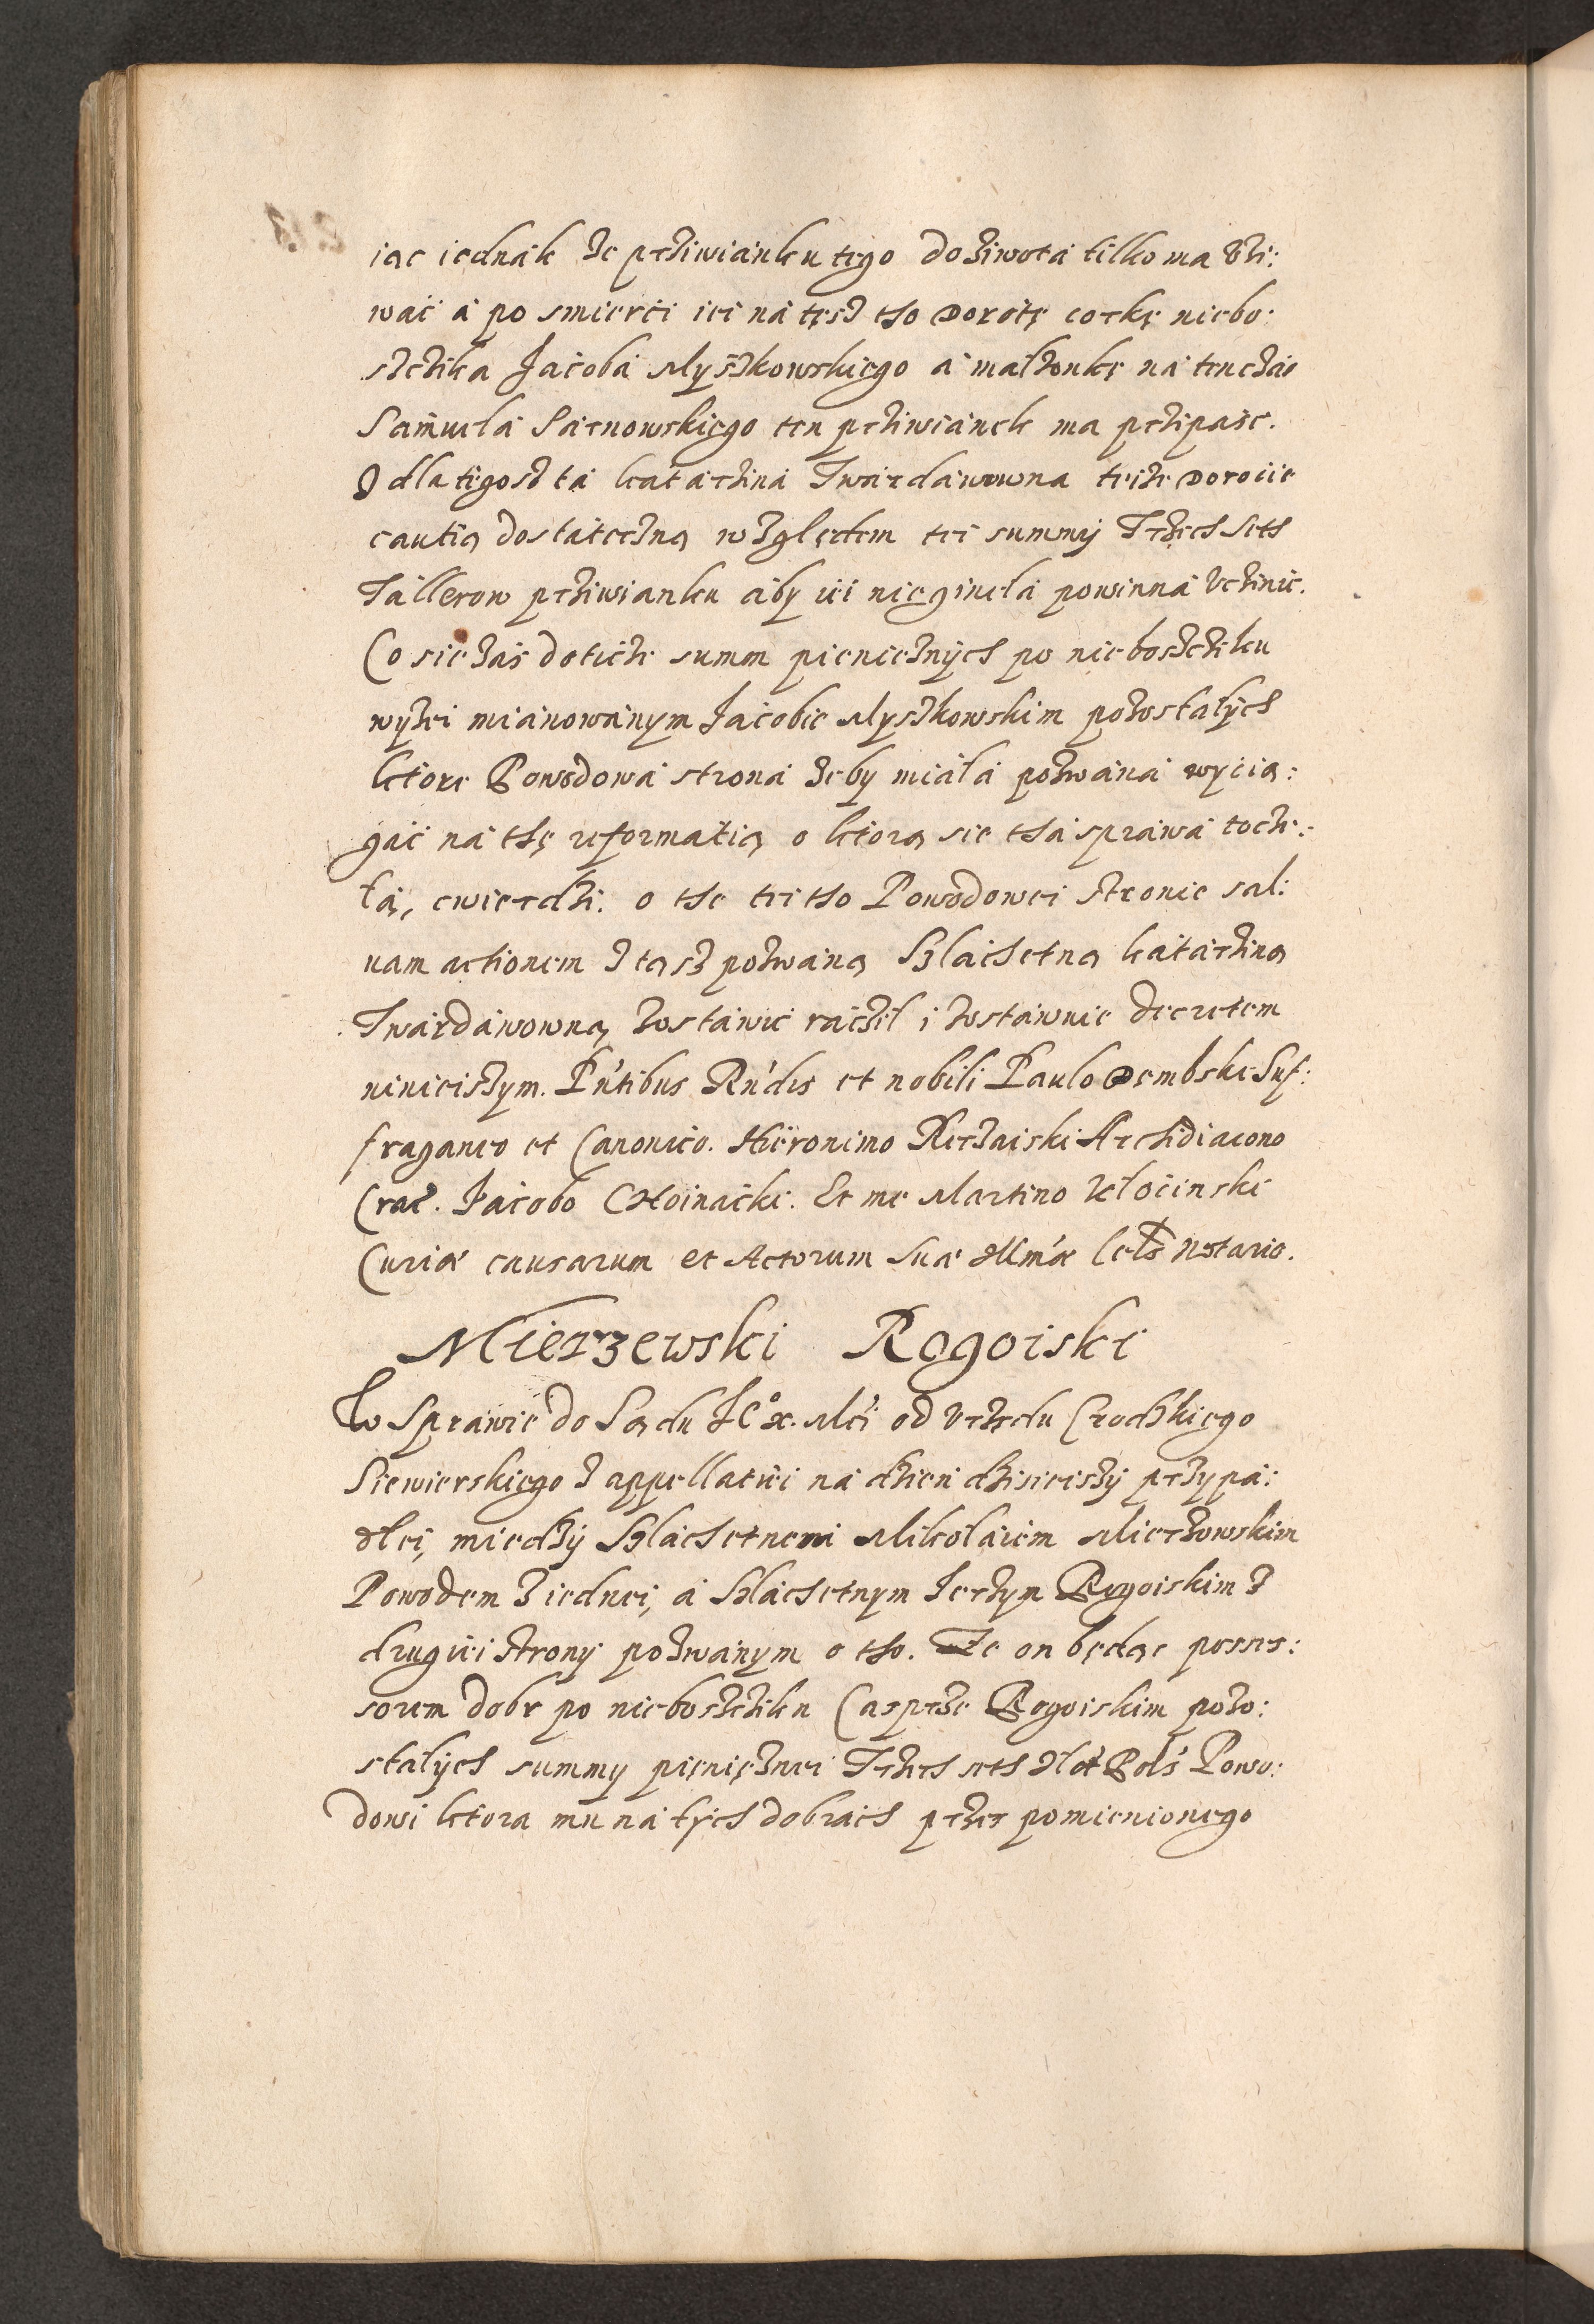 iąc iednák że przÿwiánku tego do żiwotá tilko ma vżi:
wáć á po smierci iei ná tęsz tho Dorotę corkę niebo:
szczika Jácobá Myszkowskiego á małżonkę ná tenczás
Sámuelá Sárnowskięgo ten prziwiánek ma przipáśc.
J dla tegosz tá Kátárziná Twárdáwowna teiże Dorocie
cautią dostáteczną względem tei summÿ Trzech seth
Tállerow prziwianku áby iei nięginełá powinná vczinic.
Co sie záś doticze summ pienieżnÿch po nieboszcziku
wyżei miánowánym Jácobie Myszkowskim pozostáłÿch
ktore Powodowá stroná żeby miáłá pozwáná wyciá:
gáć ná thę reformatią o ktorą sie thá spráwá tocze:
łá, cwierdzi. o the tei tho Powodowei stronie sal:
uam actionem z tąsz pozwáną Szláchetną Kátárziną
Twárdáwowną zostáwić ráczÿł i zostáwuie decretem
ninieiszym. Pntibus Rndis et nobili Paulo Dembski Suf:
fraganeo et Canonico. Hieronimo Rerzáiski Archidiacono
Crac. Jácobo Choináckі. Et me Martino Kłoćinski
Curiæ causarum et Actorum Suæ Illmæ Celsis Notario.
Mierzewski Rogoiski
W Spráwie do Sądu Jeo x. Mći od vrzędu Grodzkiego
Siewierskięgo z appellatiei ná dzień dzisieiszÿ przypá:
dłei, miedzÿ Szláchetnemi Mikołáiem Mierzowskim
Powodem z iednei, á Szláchetnym Jerzym Rogoiskim z
drugiei stronÿ pozwánym o tho. Że on będąc posses:
sorem dobr po nieboszcziku Casprze Rogoiskim pozo:
stáłÿch summy pięnięznei Trzech seth złot Pols Powo:
dowi ktora mu ná tÿch dobrách przes pomienionego